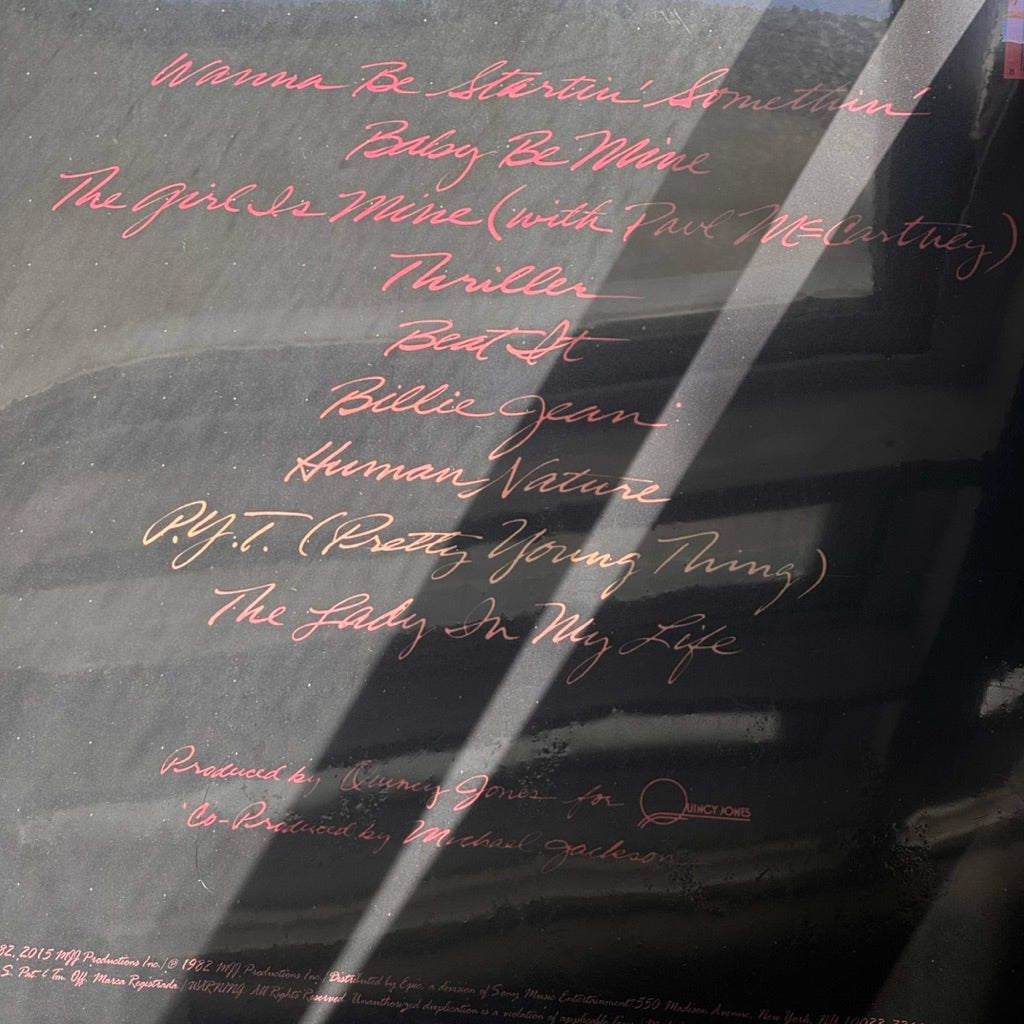 Wanna Be Startin' Somethin'
Baby Be Mine
The Girl Is Mine (with Paul McCartney)
Thriller
Beat It
Billie Jean
Human Nature
P.Y.T. (Pretty Young Thing)
The Lady In My Life
Produced by Quincy Jones for QUINCY JONES
Co-Produced by Michael Jackson
82, 2015 MJJ Productions Inc./℗ 1982 MJJ Productions Inc./Distributed by Epic, a division of Sony Music Entertainment 550 Madison Avenue, New York, NY 10022
S. Pat. & Tm. Off. Marca Registrada./WARNING: All Rights Reserved. Unauthorized duplication is a violation of applicable